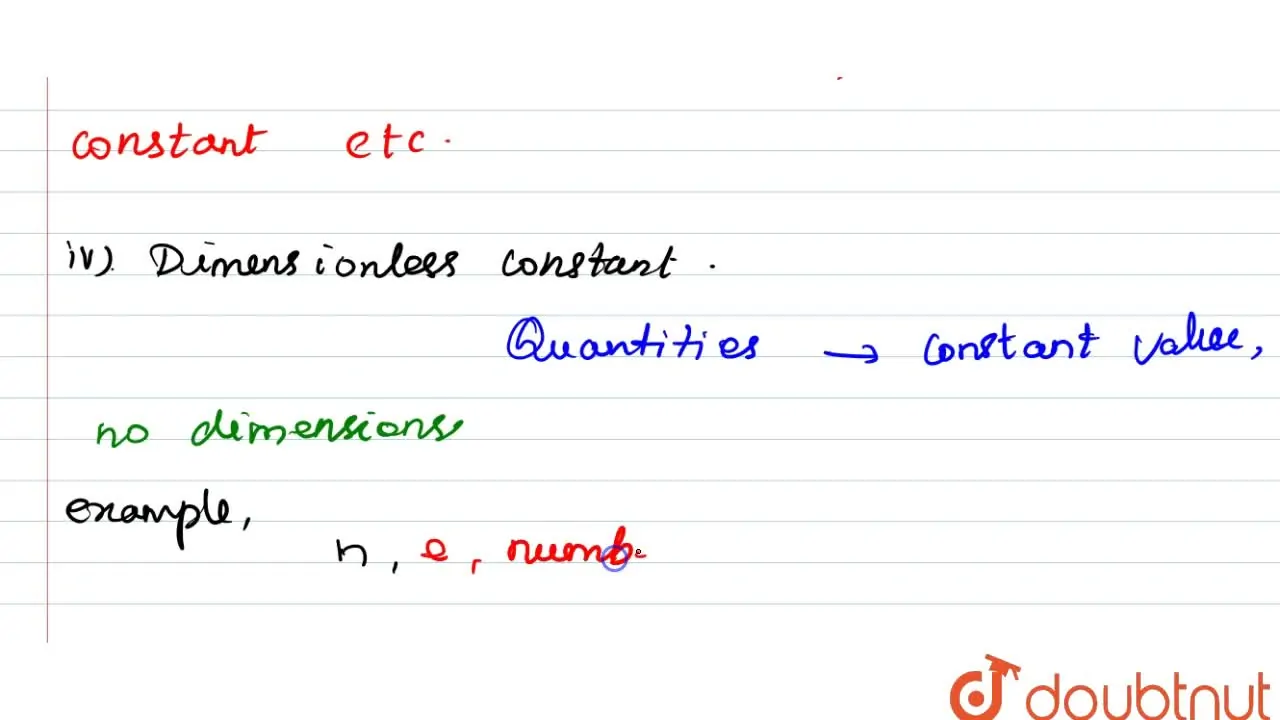 constant etc.
iv). Dimensionless constant.
Quantities → constant value,
no dimensions
example,
n, e, numb
doubtnut